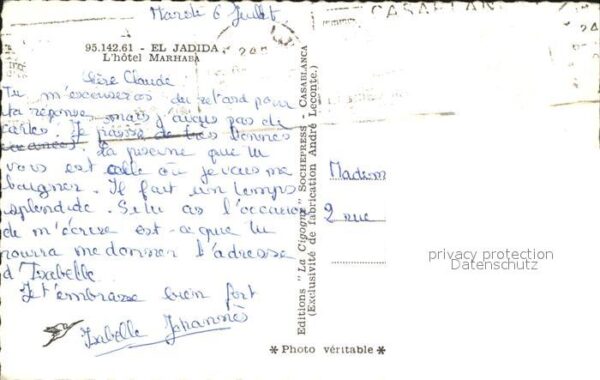 Mardi 6 Juillet
CASABLANCA
95.142.61 - EL JADIDA
L'hôtel MARHABA
Chère Claude.
Tu m'excuseras du retard pour
ta réponse mais j'avais pas de
cartes. Je passe de très bonnes
vacances. La piscine que tu
vois est celle où je vais me
baigner. Il fait un temps
splendide. Si tu as l'occasion
de m'écrire est-ce que tu
pourra me donner l'adresse
d'Isabelle.
Je t'embrasse bien fort
Isabelle Johannès
Editions "La Cigogne" SOCHEPRESS - CASABLANCA
(Exclusivité de fabrication André Leconte.)
Madem
2 rue
privacy protection
Datenschutz
* Photo véritable *